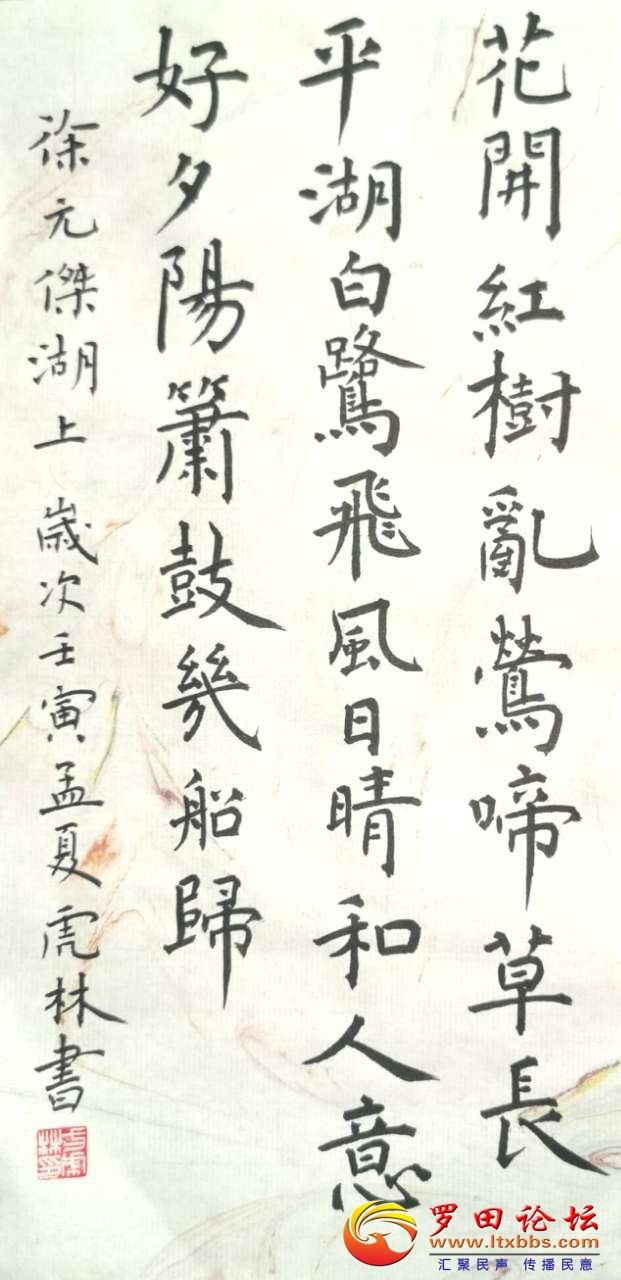 花開紅樹亂鶯啼草長
平湖白鷺飛風日晴和人意
好夕陽簫鼓幾船歸
徐元傑湖上 歲次壬寅孟夏虎林書
罗田论坛
www.ltxbbs.com
汇聚民声 传播民意